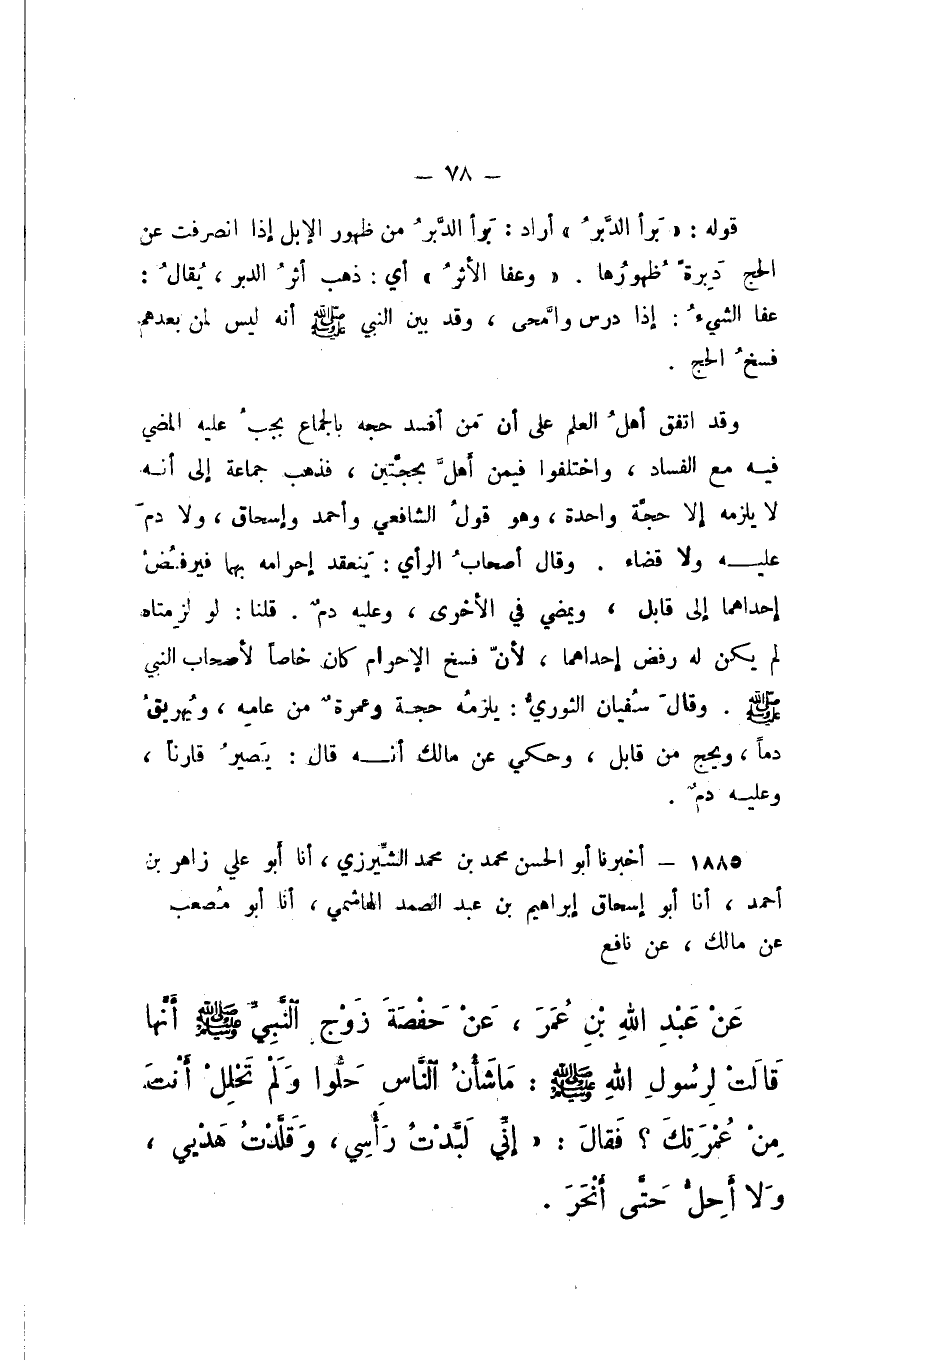 — ٧٨ —
قوله : « بَرأ الدَّبرُ » أراد : بَرأ الدَّبرُ من ظهور الإبل إذا انصرفت عن
الحج دَبِرةً ظُهورُها . « وعفا الأثرُ » أي : ذهب أثرُ الدبر ، يُقالُ :
عفا الشيءُ : إذا درس وامَّحى ، وقد بين النبي ﷺ أنه ليس لمن بعدهم
فسخُ الحج .
وقد اتفق أهلُ العلم على أن مَن أفسد حجه بالجماع يجبُ عليه المضي
فيه مع الفساد ، واختلفوا فيمن أَهلَّ بحجَّتين ، فذهب جماعة إلى أنه
لا يلزمه إلا حجَّة واحدة ، وهو قولُ الشافعي وأحمد وإسحاق ، ولا دمَ
عليه ولا قضاء . وقال أصحابُ الرأي : يَنعقد إحرامه بها فيرفُضُ
إحداهما إلى قابل ، ويمضي في الأخرى ، وعليه دمٌ . قلنا : لو لزمتاه
لم يكن له رفض إحداهما ، لأنّ فسخ الإحرام كان خاصاً لأصحاب النبي
ﷺ . وقالَ سُفيان الثوريُّ : يلزمُه حجة وعمرةٌ من عامه ، ويُهريقُ
دماً ، ويحج من قابل ، وحكي عن مالك أنه قال : يَصيرُ قارناً ،
وعليه دمٌ .
١٨٨٥ – أخبرنا أبو الحسن محمد بن محمد الشِّيرزي ، أنا أبو علي زاهر بن
أحمد ، أنا أبو إسحاق إبراهيم بن عبد الصمد الهاشمي ، أنا أبو مُصعب
عن مالك ، عن نافع
عَنْ عَبْدِ اللهِ بْنِ عُمَرَ ، عَنْ حَفْصَةَ زَوْجِ النَّبِيِّ ﷺ أَنَّها
قَالَتْ لِرسُولِ اللهِ ﷺ : مَا شَأْنُ النَّاسِ حَلُّوا وَلَمْ تَحْلِلْ أَنْتَ
مِنْ عُمْرَتِكَ ؟ فَقالَ : « إنِّي لَبَّدْتُ رَأْسِي ، وَقَلَّدْتُ هَدْيي ،
وَلا أَحِلُّ حَتَّى أَنْحَرَ .